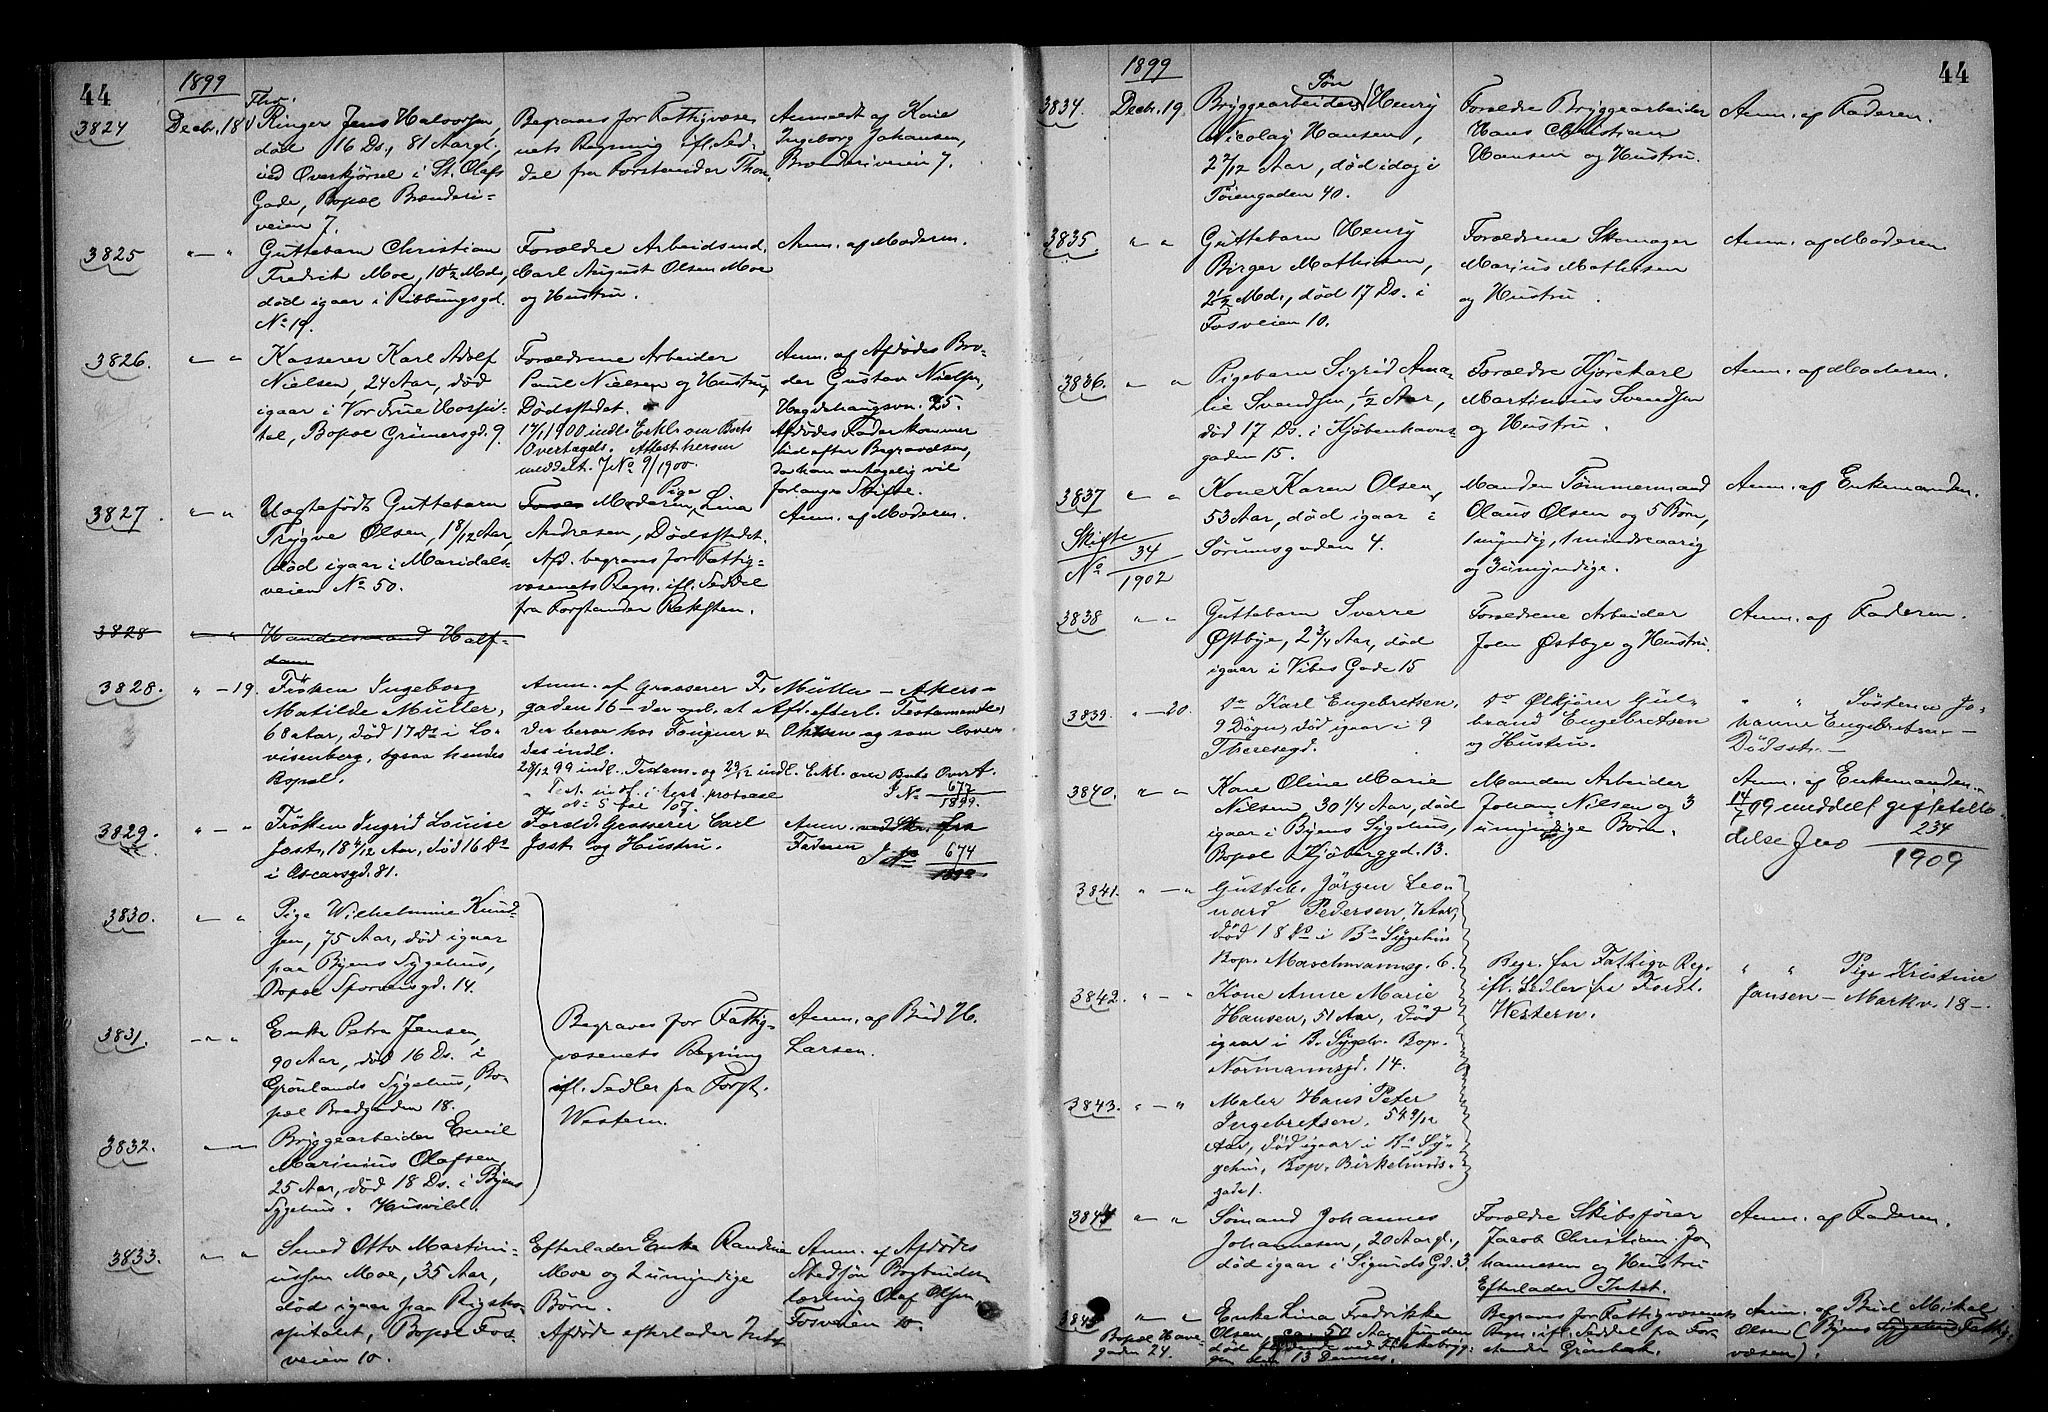 44
1899
3824
Decbr. 18
Fhv.
Ringer Jens Halvorsen,
død 16 Ds., 81 Aar gl.,
ved Overkjørsel i St. Olafs
Gade, Bopæl Brænderi-
veien 7.
Begraves for Fattigvæse-
nets Regning ifl. Sed-
del fra Forstander Thon.
Anmeldt af Kone
Ingeborg Johansen,
Brænderiveien 7.
3825
" — "
Guttebarn Christian
Fredrik Moe, 10½ Md.,
død igaar i Ribbungsgd.
No 19.
Forældre Arbeidsmd.
Carl August Olsen Moe
og Hustru.
Anm. af Moderen.
3826.
" — "
Kasserer Karl Adolf
Nielsen, 24 Aar, død
igaar i Vor Frue Hospi-
tal, Bopæl Grünersgd. 9.
Forældrene Arbeider
Paul Nielsen og Hustru,
Dødsstedet.
17/1 1900 indl. Erkl. om Boets
Overtagels. Attest herom
meddelt. 7 No 9/1900.
Anm. af Afdødes Bro-
der Gustav Nielsen,
Hegdehaugsvn. 25.
Afdødes Fader kommer
hid efter Begravelsen,
da han antagelig vil
forlange Skifte.
3827.
" — "
Uægtefødt Guttebarn
Trygve Olsen, 1 8/12 Aar,
død igaar i Maridals-
veien No 50.
Moderen, Pige Lina
Andresen, Dødsstedet.
Afd. begraves for Fattig-
væsenets Regn. ifl. Seddel
fra Forstander Reksten.
Anm. af Moderen.
3828
" — "
Handelsmand Half-
dan
3828.
" — 19.
Frøken Ingeborg
Matilde Müller,
68 Aar, død 17 Ds i Lo-
visenberg, ogsaa hendes
Bopæl.
Anm. af Grosserer F. Müller — Akers-
gaden 16 — der opl. at Afd. efterl. Testamente,
der beror hos Fougner &
og som lover-
des indl.
28/12 99 indl. Testam. og 29/12 indl. Erkl. om Boets OverT.
Test. indf. i test. protocol
No 5 fol 107.
S No 677/1899.
3829.
" — "
Frøken Ingrid Louise
Jost, 18 4/12 Aar, død 16 Ds
i Oscarsgd. 81.
Foreld. Grosserer Carl
Jost og Hustru.
Anm.
Faderen
674
1899
3830.
" — "
Pige Wilhelmine Knud-
sen, 75 Aar, død igaar
paa Byens Sygehus,
Bopæl Sporveisgd. 14.
3831.
" — "
Enke Petra Jensen,
90 Aar, død 16 Ds. i
Grønlands Sygehus, Bo-
pæl Bredgaden 18.
Begraves for Fattig-
væsenets Regning
ifl. Sedler fra Forst.
Western.
Anm. af Bud H.
Larsen.
3832.
" — "
Bryggearbeider Emil
Marinius Olafsen,
25 Aar, død 18 Ds. i Byens
Sygehus. Husvild.
3833.
" — "
Smed Otto Martini-
ussen Moe, 35 Aar,
død igaar paa Rigsho-
spitalet, Bopæl Fos-
veien 10.
Efterlader Enke Randine
Moe og 2 umyndige
Børn.
Afdøde efterlader Intet.
Anm. af Afdødes
Stedsøn Bogbinder-
lærling Olaf Olsen,
Fosveien 10.
44
1899
3834.
Decbr. 19.
Bryggearbeiders Søn Henry
Nicolay Hansen,
2 2/12 Aar, død idag i
Tøiengaden 40.
Forældre Bryggearbeider
Hans Christian
Hansen og Hustru.
Anm. af Faderen.
3835.
" "
Guttebarn Henry
Birger Mathisen,
2½ Md., død 17 Ds. i
Fosveien 10.
Forældrene Skomager
Marius Mathisen
og Hustru.
Anm. af Moderen
3836.
" "
Pigebarn Sigrid Ama-
lie Svendsen, ½ Aar,
død 17 Ds. i Kjøbenhavns-
gaden 15.
Forældre Kjørekarl
Martinius Svendsen
og Hustru.
Anm. af Moderen.
3837
" "
Skifte
No 34/1902
Kone Karen Olsen,
53 Aar, død igaar i
Sørumsgaden 4.
Manden Tømmermand
Olaus Olsen og 5 Børn,
1 myndig, 1 mindreaarig
og 3 umyndige.
Anm. af Enkemanden.
3838
" "
Guttebarn Sverre
Østbye, 2 3/4 Aar, død
igaar i Vibes Gade 15
Forældrene Arbeider
John Østbye og Hustru.
Anm. af Faderen.
3839.
" — 20.
Do Karl Engebretsen,
9 Døgn, død igaar i 9
Theresegd.
Do Ølkjører Gul-
brand Engebretsen
og Hustru.
" " Søsteren Jo-
hanne Engebretsen —
Dødsst. —
3840.
" "
Kone Oline Marie
Nilsen, 30 1/4 Aar, død
igaar i Byens Sygehus,
Bopæl Kjøberggd. 13.
Manden Arbeider
Johan Nilsen og 3
umyndige Børn.
Anm. af Enkemanden.
14/7 09 meddelt giftetilla-
delse Jno 234/1909
3841.
" — "
Gutteb. Jørgen Leo-
nard Pedersen, 7 Aar,
død 18 Ds i Bs Sygehus
Bop. Maschmannsg. 6.
3842.
" — "
Kone Anne Marie
Hansen, 51 Aar, død
igaar i B. Sygeh. Bop.
Normannsgd. 14.
Begr. for Fattigv Reg.
ifl. Sedler fra Forst.
Western.
" " Pige Kristine
Jansen — Markv. 18 —.
3843.
" — "
Maler Hans Peter
Ingebretsen, 54 9/12
Aar, død igaar i Ds Sy-
gehus, Bop. Birkelunds-
gade 1.
3844
" — "
Sømand Johannes
Johannesen, 20 Aar gl.,
død igaar i Sigurds Gd. 3.
Forældre Skibsfører
Jacob Christian Jo-
hannesen og Hustru
Efterlader Intet.
Anm. af Faderen.
3845
" — "
Bopæl Have-
gaden 24.
Enke Lina Fredrikke
Olsen, ca. 50 Aar, funden
død flydende ved Fiskebryg-
gen den 13 Dennes.
Begraves for Fattigvæsenets
Regn. ifl. Seddel fra For-
stander Grønbæk.
Anm. af Bud Mikal
Olsen (Byens Sygehus Fattig-
væsen).